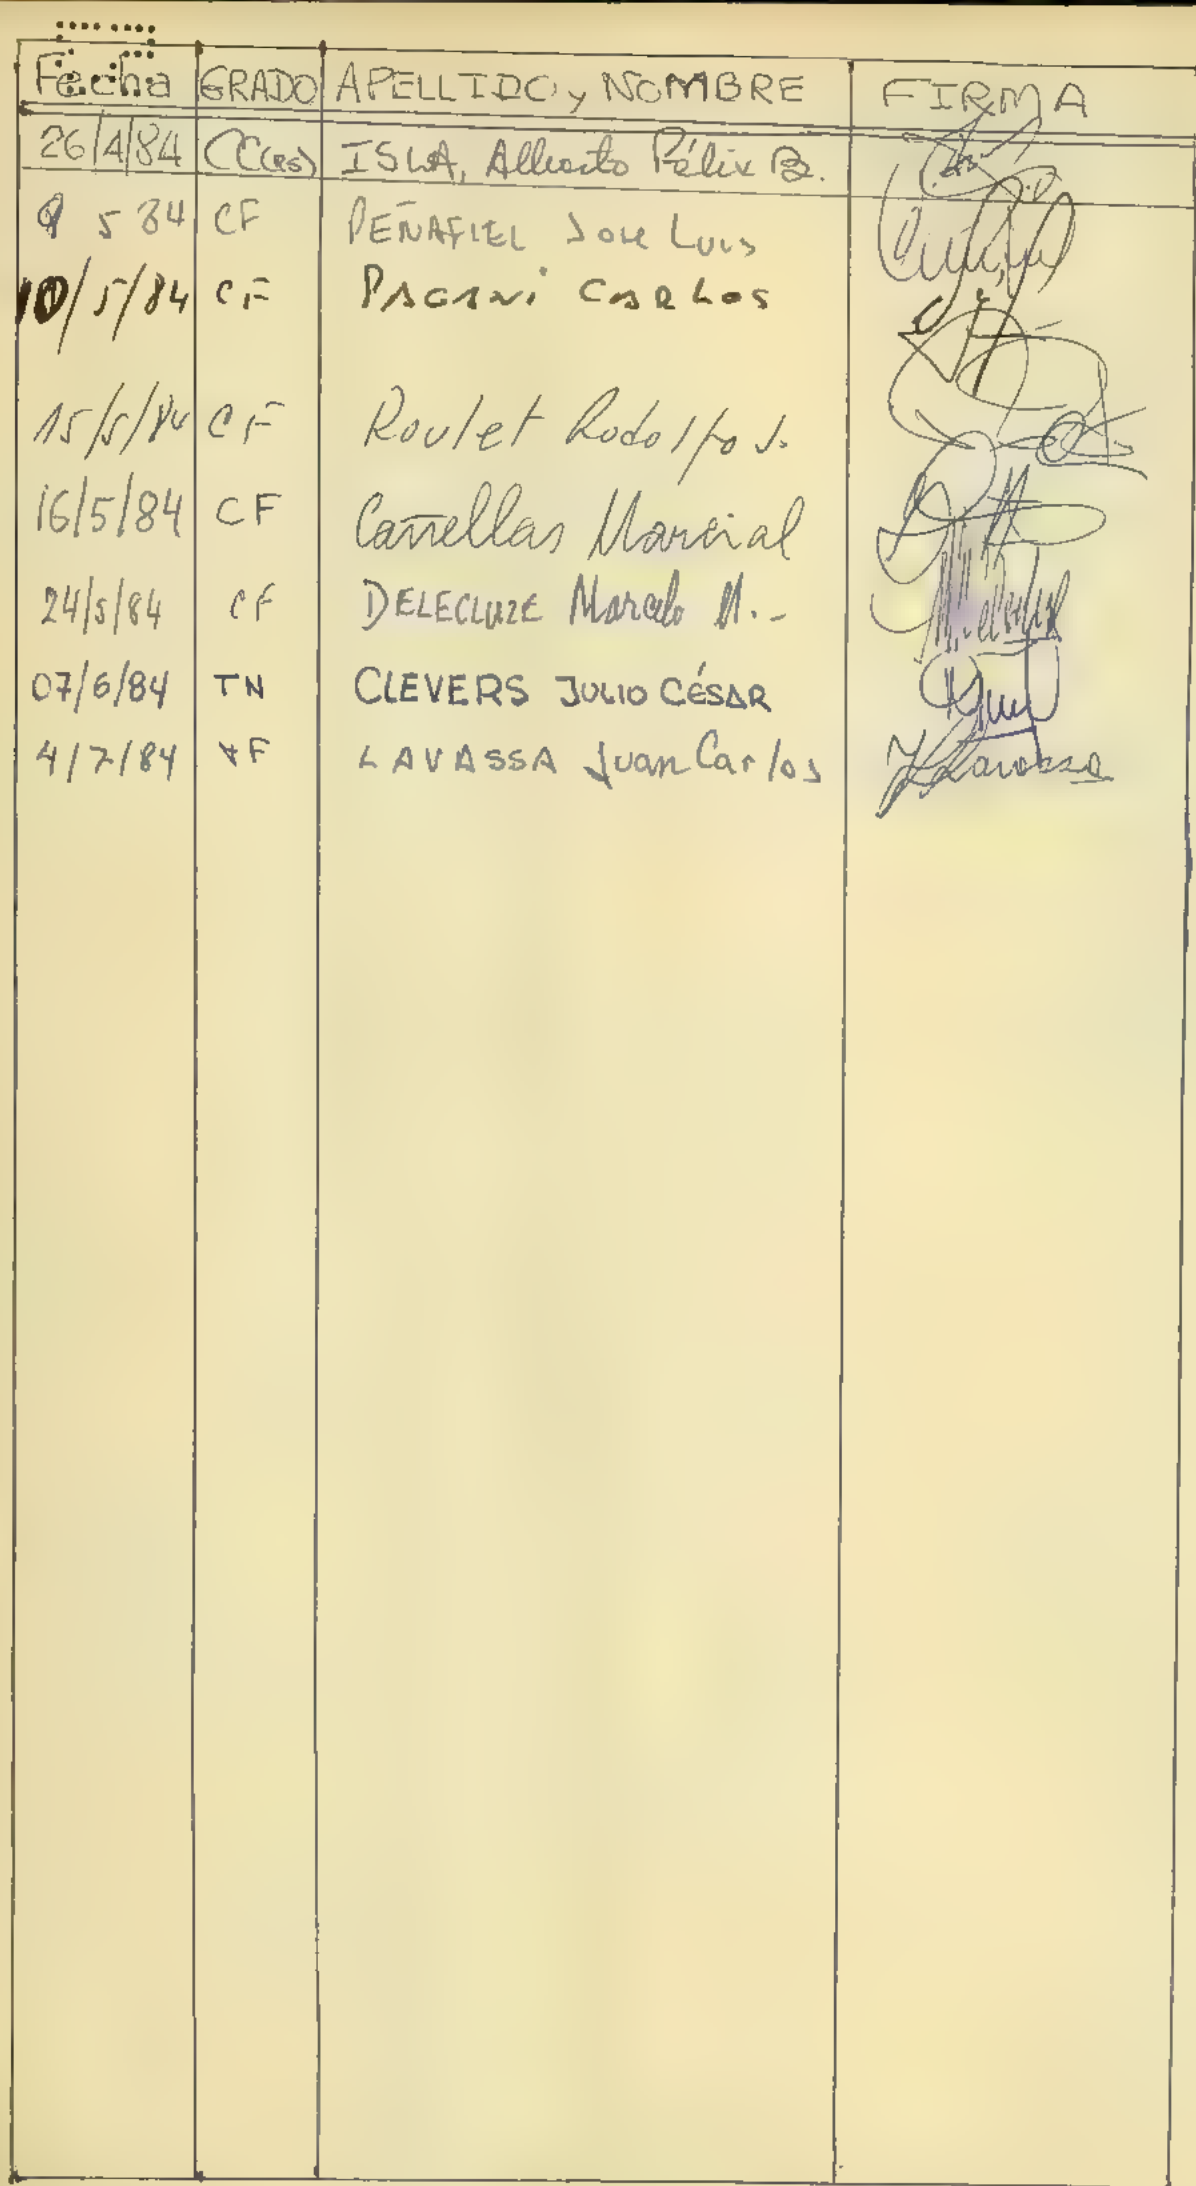 Fecha GRADO APELLIDO y NOMBRE FIRMA
26/4/84 CC(RS) ISLA, Alberto Félix B.
9 5 84 CF PEÑAFIEL Jose Luis
10/5/84 CF PAGANI CARLOS
15/5/84 CF Roulet Rodolfo J.
16/5/84 CF Cañellas Marcial
24/5/84 CF DELECLUZE Marcelo M.-
07/6/84 TN CLEVERS JULIO CÉSAR
4/7/84 LAVASSA Juan Carlos